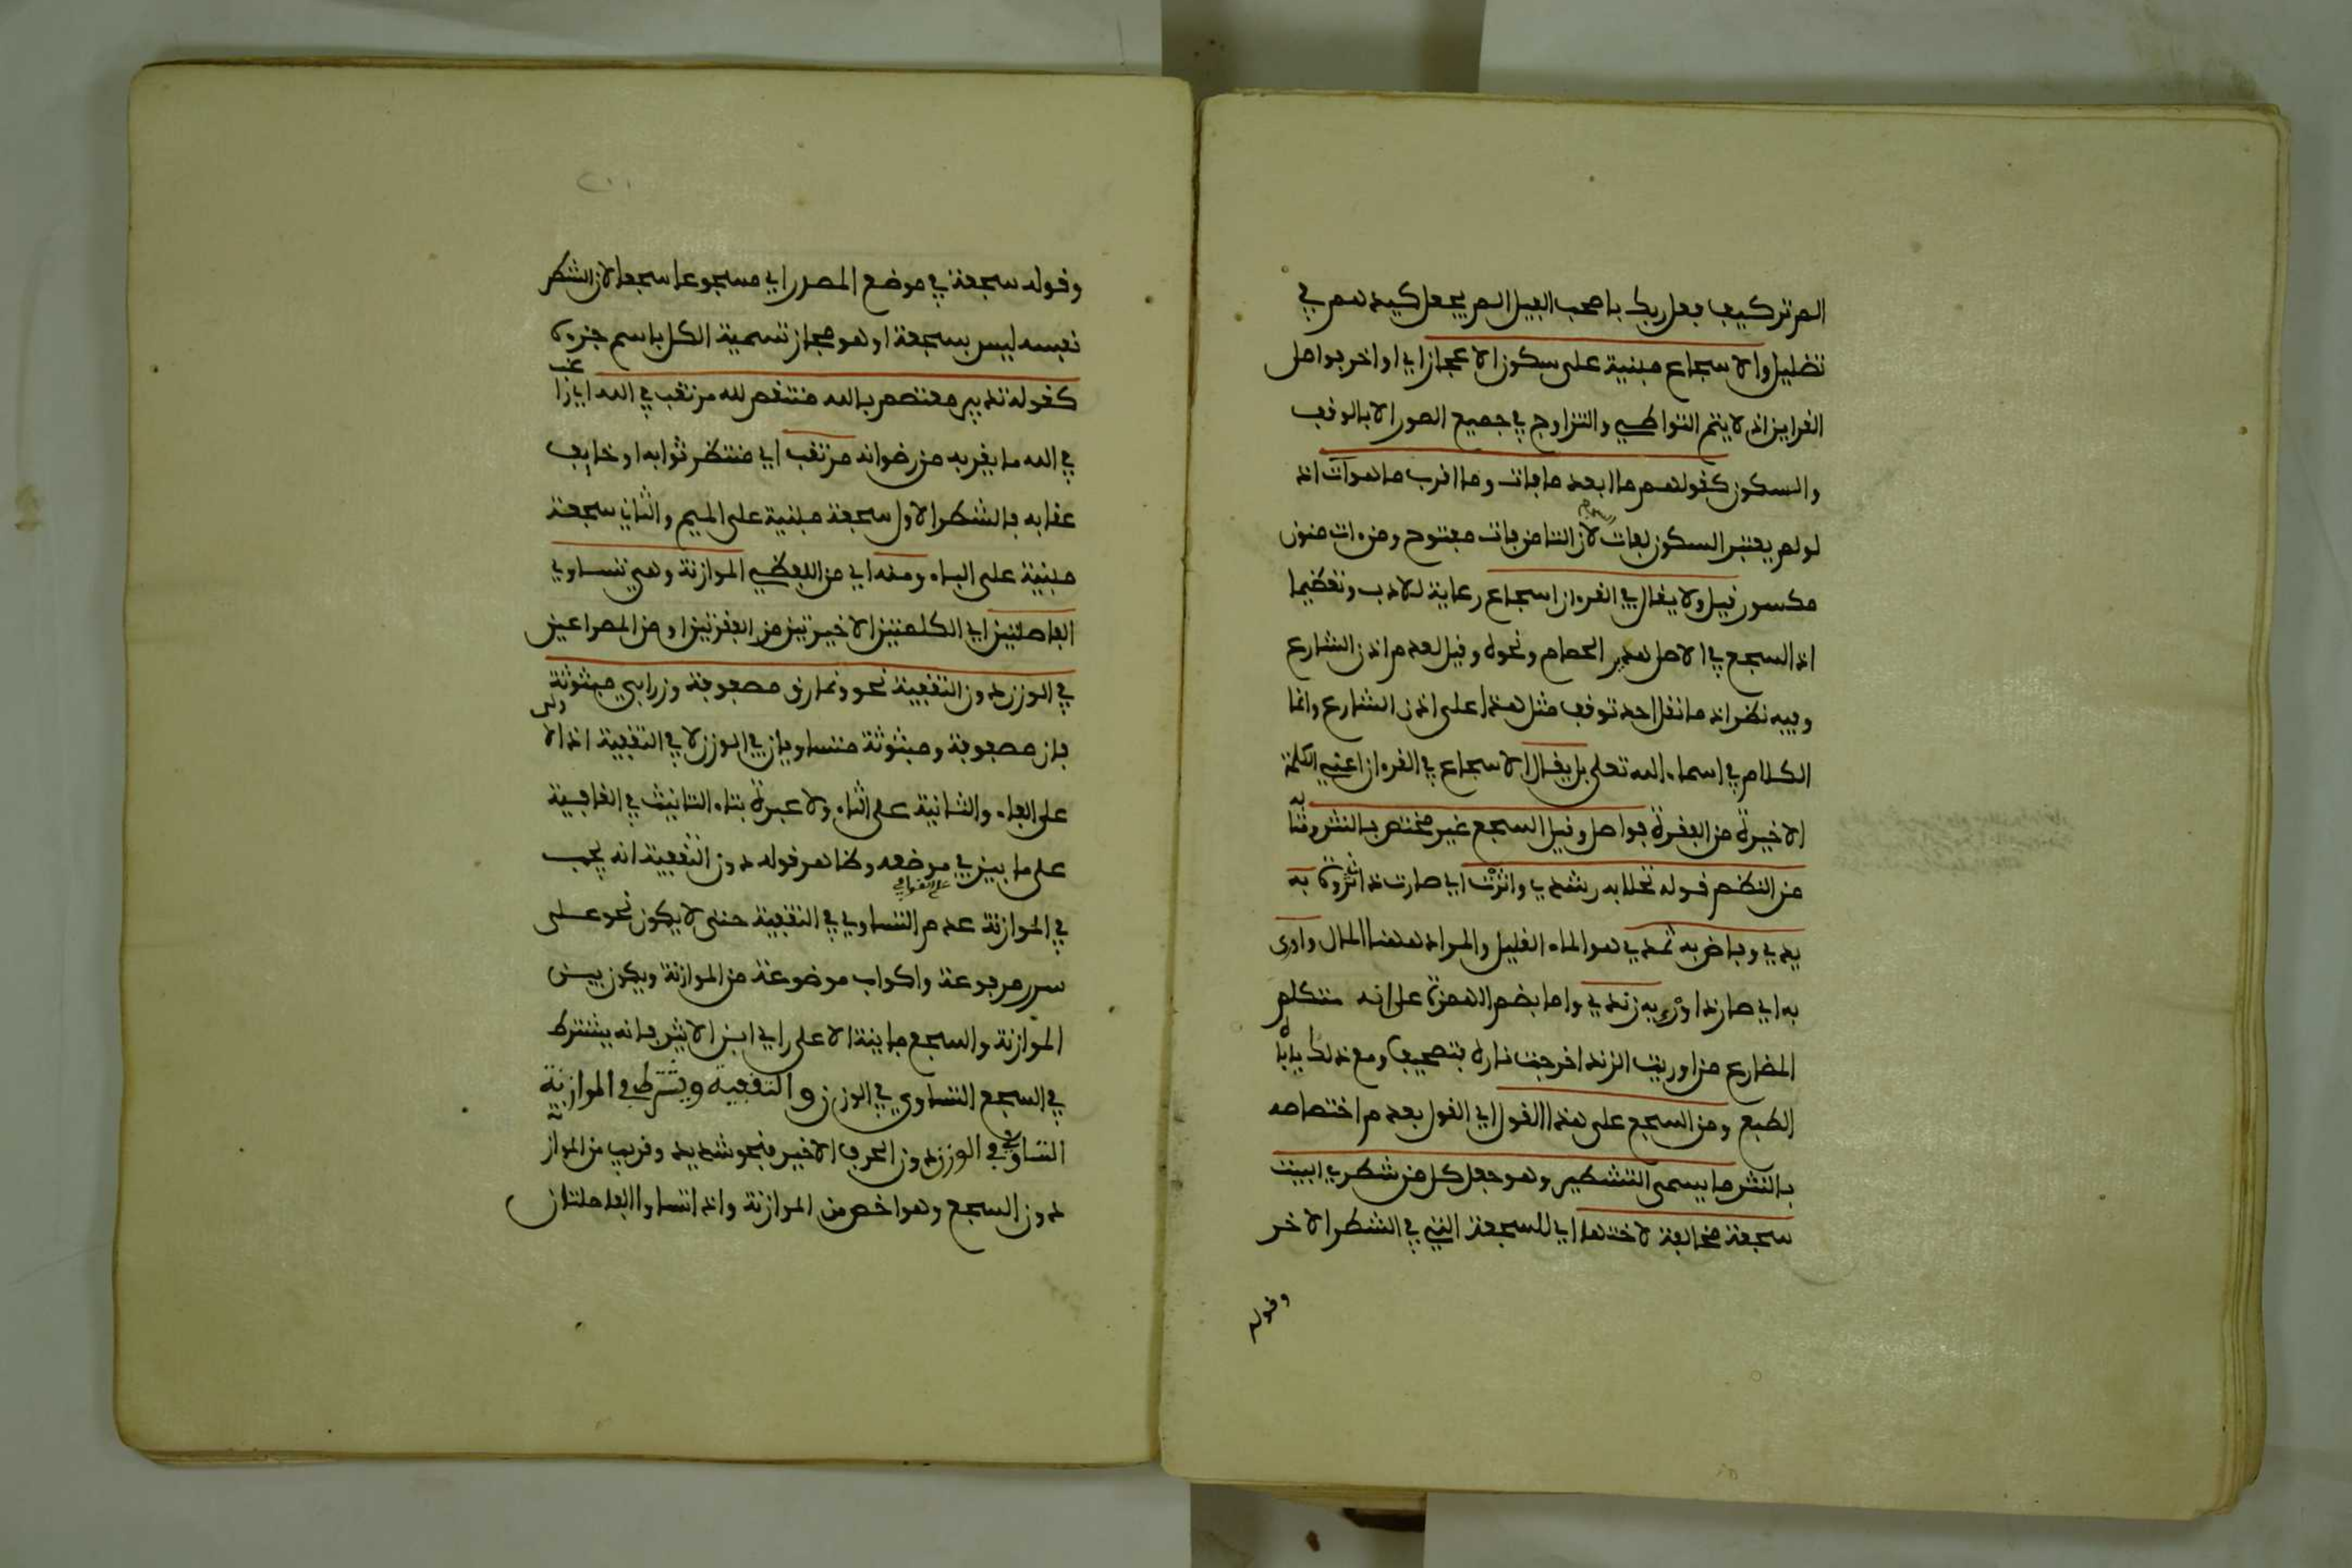 الم تر كيف فعل ربك باصحب الفيل الم يجعل كيدهم في
تضليل والاسجاع مبنية على سكون الاعجاز اي اواخر فواصل
القراين اذ لا يتم التواطي والتزاوج في جميع الصور الا بالوقف
والسكون كقولهم ما ابعد ما فات وما اقرب ما هو آت اذ
لو لم يعتبر السكون لفات لان التا من فات مفتوح ومن ءات منون
مكسور قيل ولا يقال في القرءان اسجاع رعاية للادب وتعظيما
اذ السجع في الاصل هدير الحمام ونحوه وقيل لعدم اذن الشارع
وفيه نظر اذ ما نقل احد توقف مثل هذا على اذن الشارع وانما
الكلام في اسماء الله تعلى بل يقال الاسجاع في القرءان اعني الكلمة
الاخيرة من الفقرة فواصل وقيل السجع غير مختص بالنثر ومثاله
من النظم قوله تجلا به رشدي واثرت اي صارت ذا ثروة به
يدي وفاض به ثمدي هو الماء القليل والمراد هاهنا المال واورى
به اي صار ذا وري به زندي واما بضم الهمزة على انه متكلم
المضارع من اوريت الزند اخرجت ناره فتصحيف ومع ذلك ياباه
الطبع ومن السجع على هذا القول اي القول بعدم اختصاصه
بالنثر ما يسمى التشطير وهو جعل كل من شطري البيت
سجعة مخالفة لاختها اي للسجعة التي في الشطر الاخر
وقوله
٢٠١
وقوله سجعة في موضع المصدر اي مسجوعا سجعة لان الشطر
نفسه ليس بسجعة او هو مجاز تسمية الكل باسم جزءه
كقوله تدبير معتصم بالله منتقم لله مرتغب في الله اي راغب
في الله ما يقربه من رضوانه مرتقب اي منتظر ثوابه او خايف
عقابه فالشطر الاول سجعة مبنية على الميم والثاني سجعة
مبنية على الباء ومنه اي من اللفظي الموازنة وهي تساوي
الفاصلتين اي الكلمتين الاخيرتين من الفقرتين او من المصراعين
في الوزن دون التقفية نحو ونمارق مصفوفة وزرابي مبثوثة
فان مصفوفة ومبثوثة متساويان في الوزن لا في التقفية اذ الاولى
على الفاء والثانية على الثاء ولا عبرة بتاء التانيث في القافية
على ما بين في موضعه وظاهر قوله دون التقفية انه يجب
في الموازنة عدم التساوي في التقفية حتى لا يكون نحو على
سرر مرفوعة واكواب موضوعة من الموازنة ويكون بين
الموازنة والسجع مباينة الا على راي ابن الاثير فانه يشترط
في السجع التساوي في الوزن والتقفية ويشترط في الموازنة
التساوي في الوزن دون الحرف الاخير فنحو شديد وقريب من الموازنة
دون السجع وهو اخص من الموازنة واذا تساوا الفاصلتان